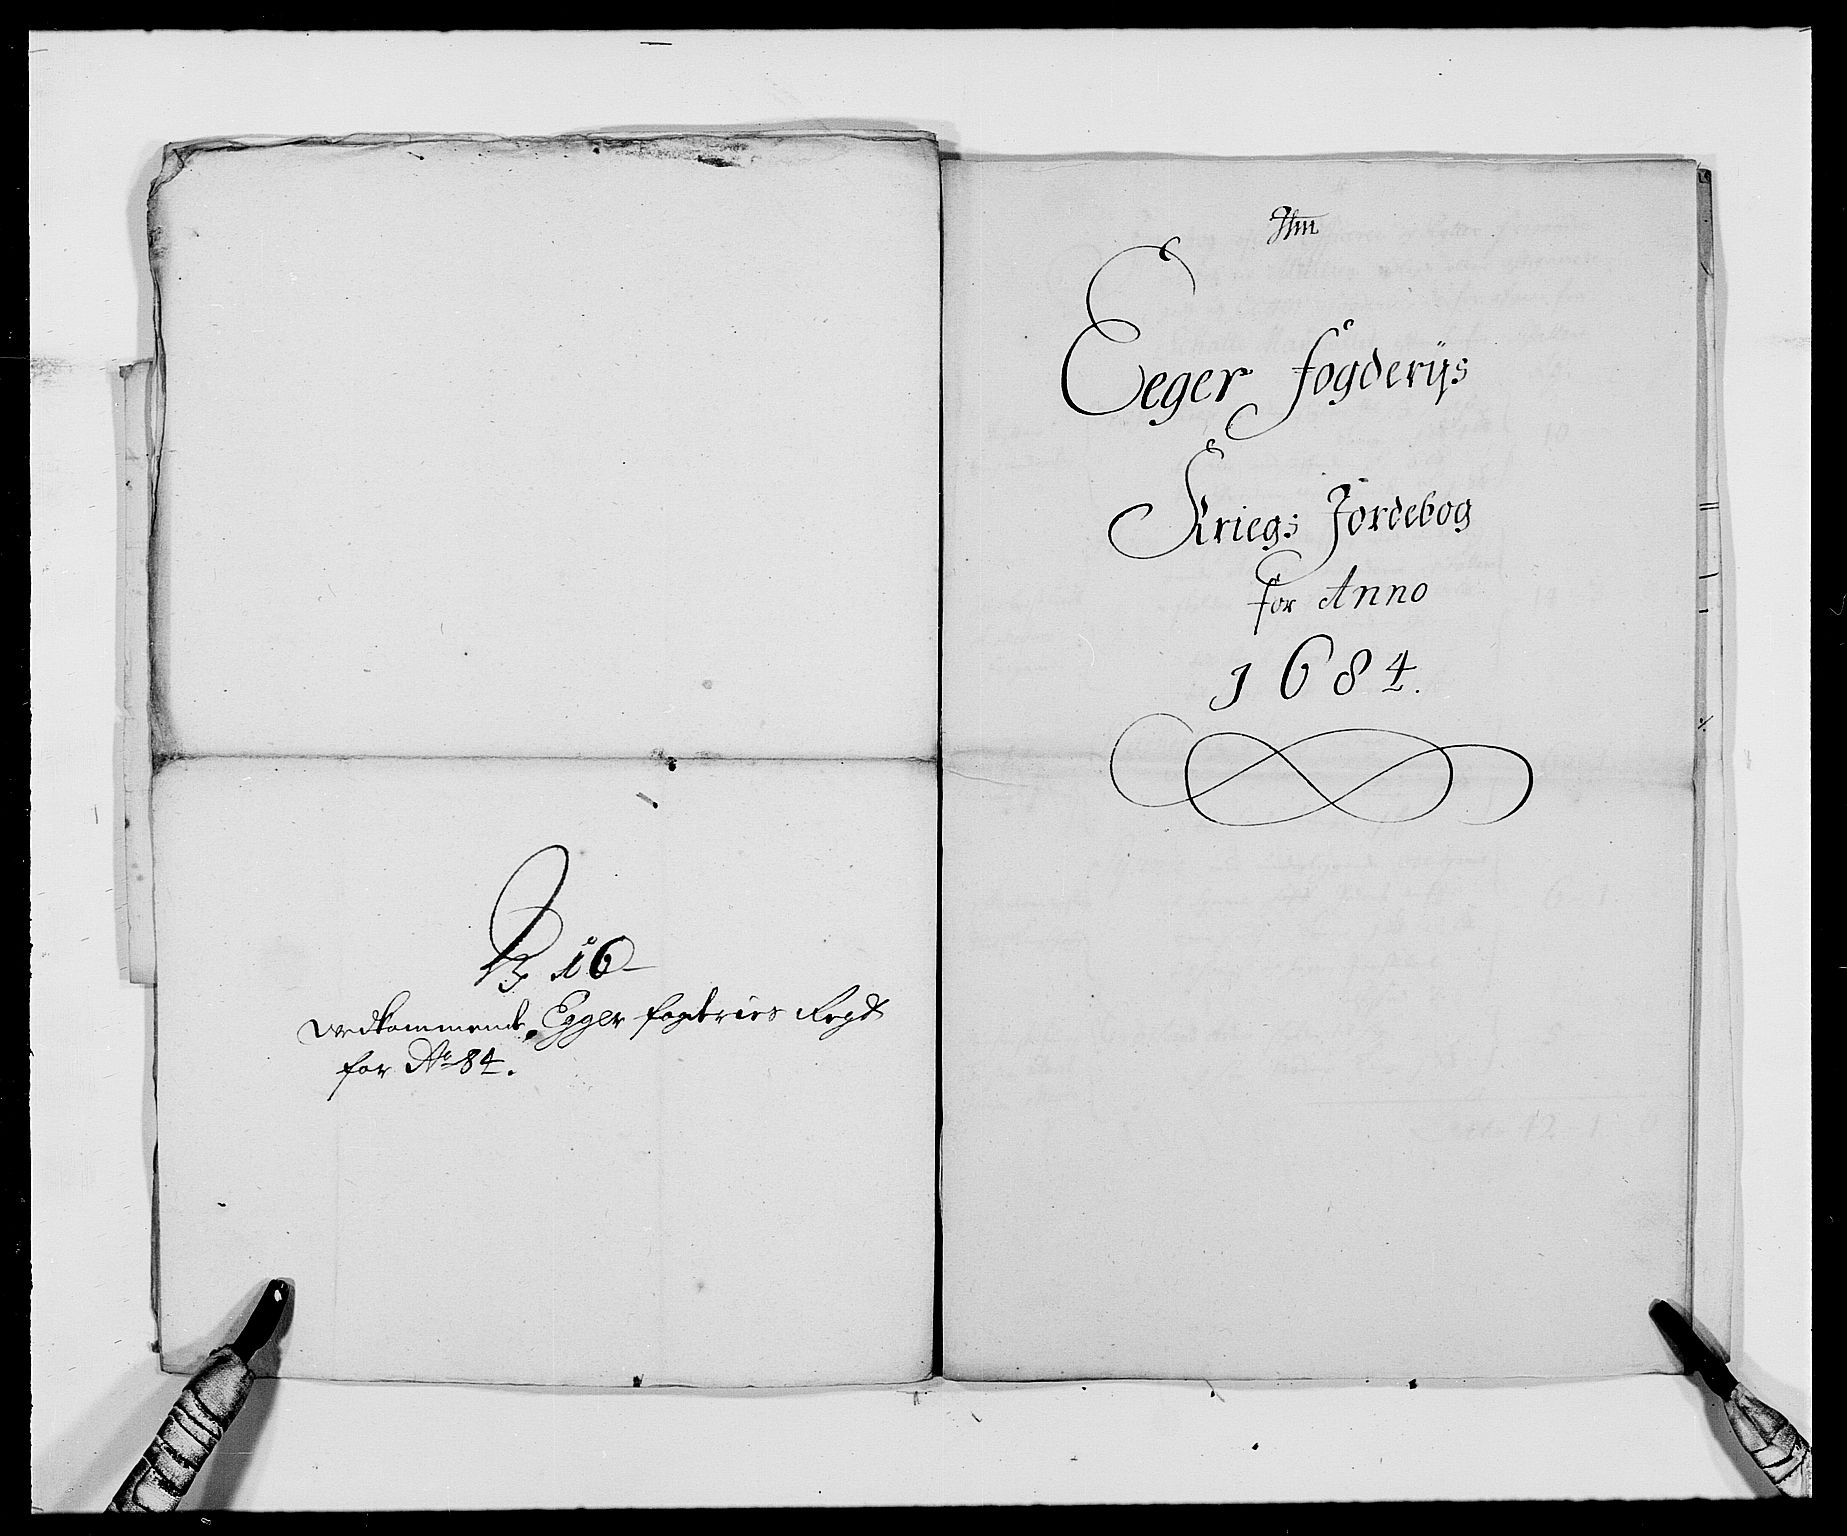 No 16
vedkommende Egger fogderies Regsk
for Ao 84.
Eeger fogderijs
Kriegs Jordebog
for Anno
1684.